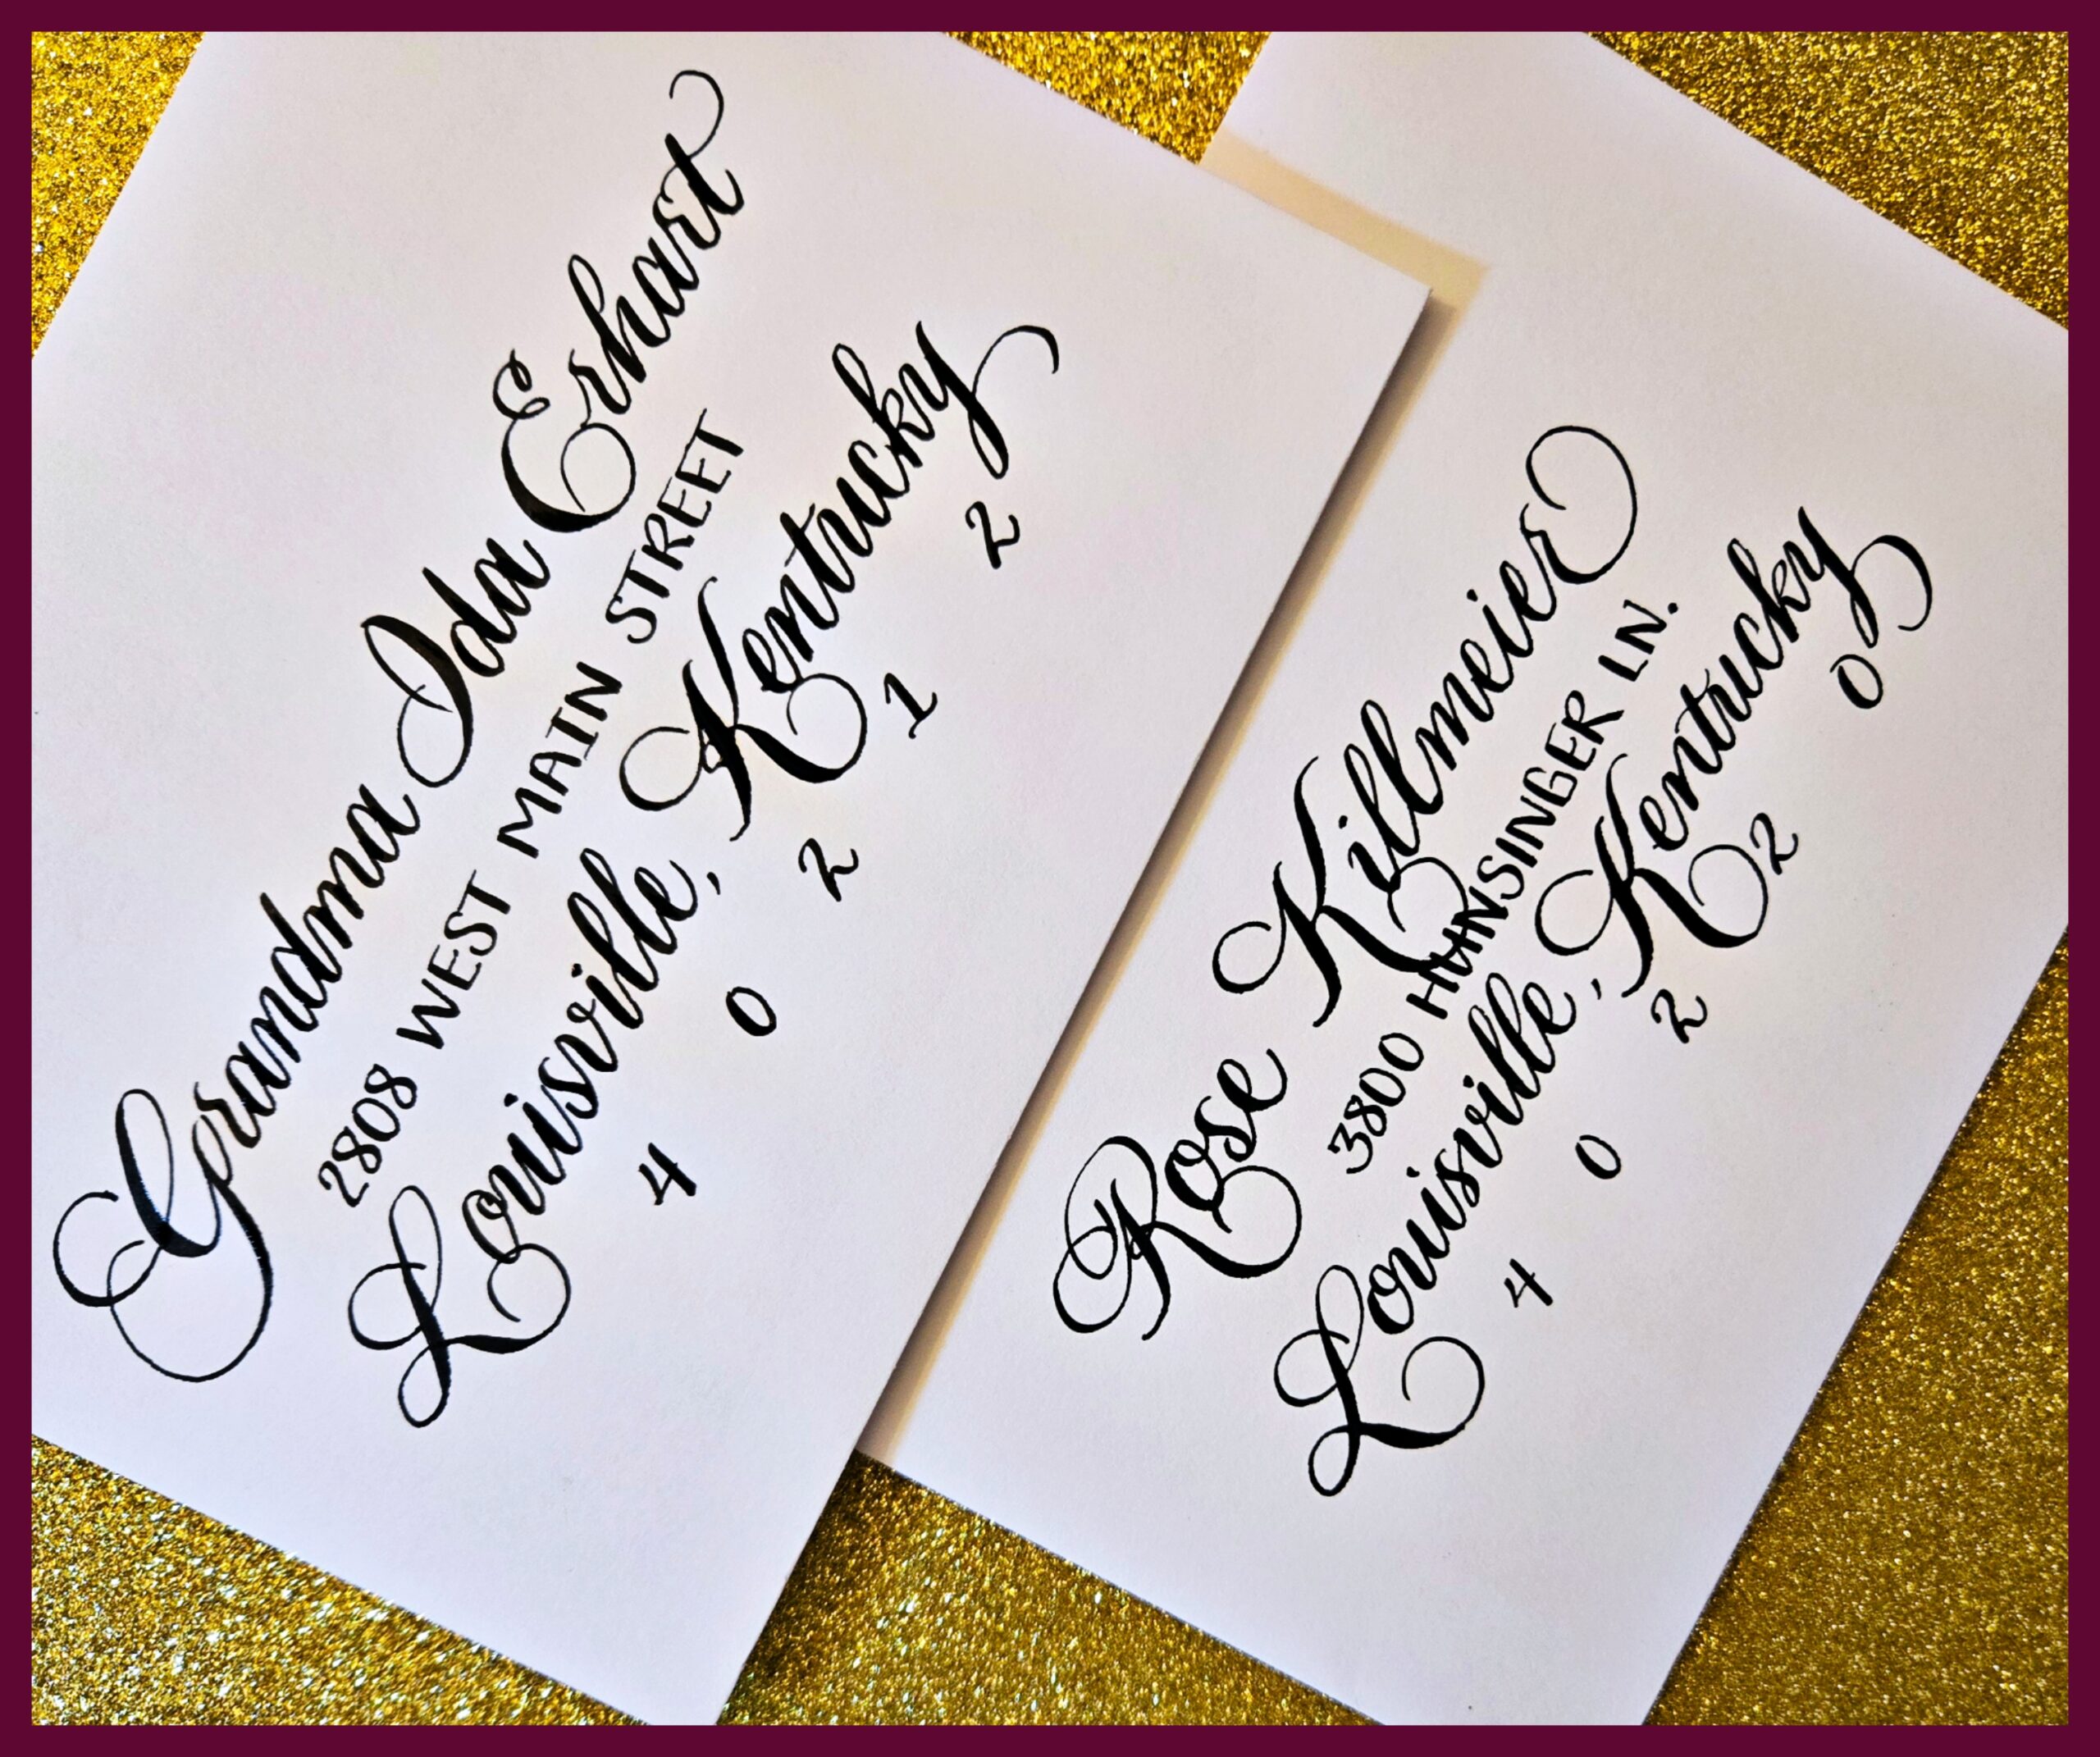 Grandma Ida Erhart
2808 WEST MAIN STREET
Louisville, Kentucky
4 0 2 1 2
Rose Killmeier
3800 HUNSINGER LN.
Louisville, Kentucky
4 0 2 2 0